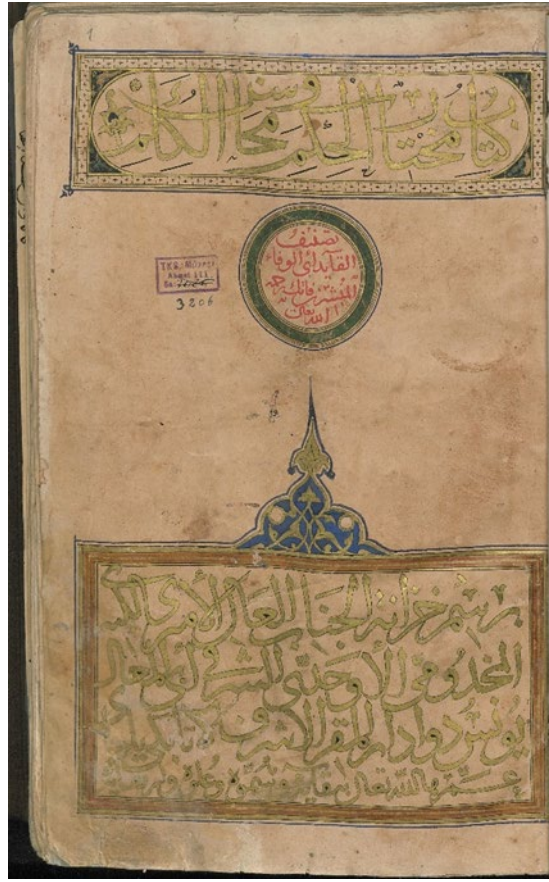 1
كتاب مختار الحكم ومحاسن الكلم
تصنيف
القايد ابي الوفاء
المبشر بن فاتك رحمه
الله تعالى
TKS. MÜZESİ
Ahmet III.
3206
برسم خزانة الجناب العالي الأميري الكبيري
المخدومي الأوحدي السيفي
يونس دوادار المقر الأشرف
الله تعالى